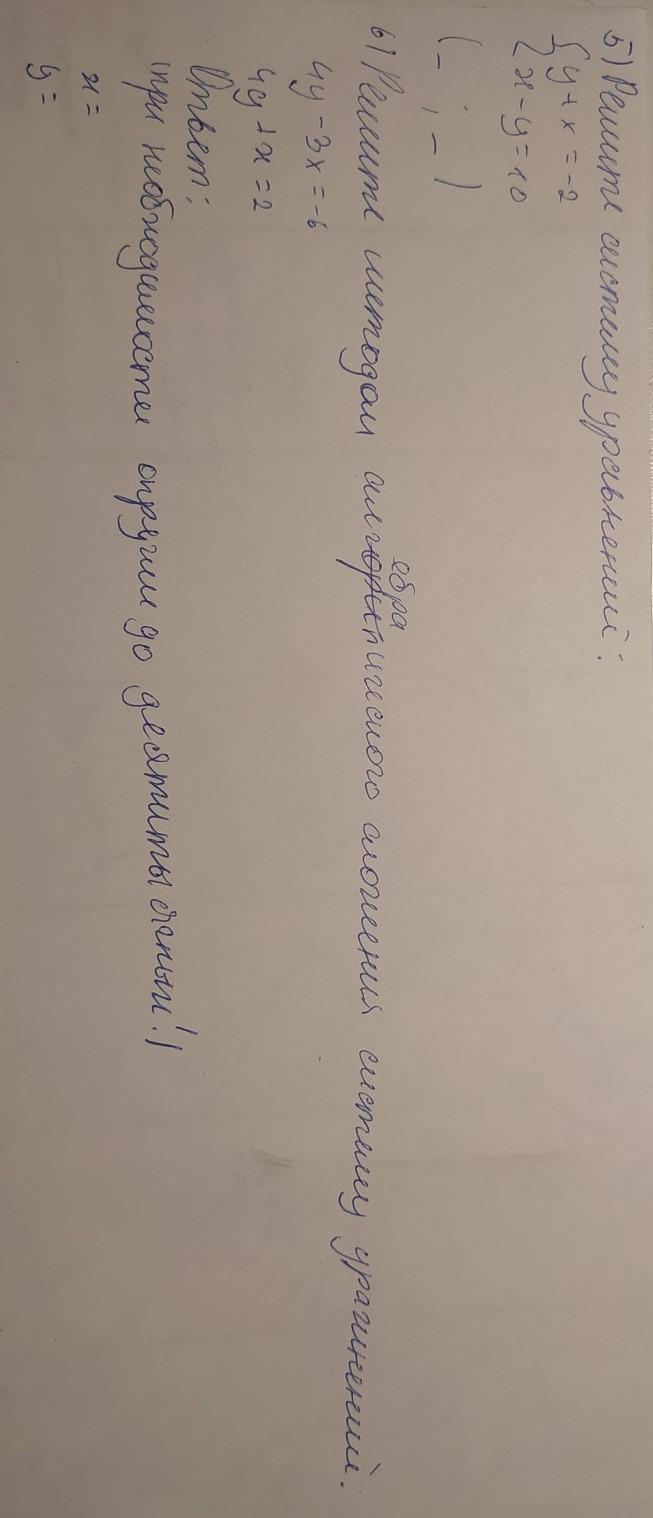 5) Решите систему уравнений:
{ y + x = -2
{ x - y = 10
( _ ; _ )
6) Решите методом алгебраического сложения систему уравнений.
4y - 3x = -6
4y + x = 2
Ответ:
(при необходимости округли до
x =
y =